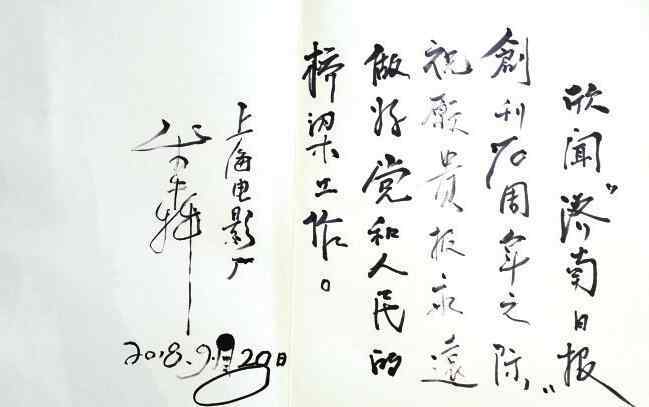 欣闻“济南日报”
創刊70周年之际,
祝愿貴报永遠
做好党和人民的
桥梁工作。
上海电影厂
2018.9月20日